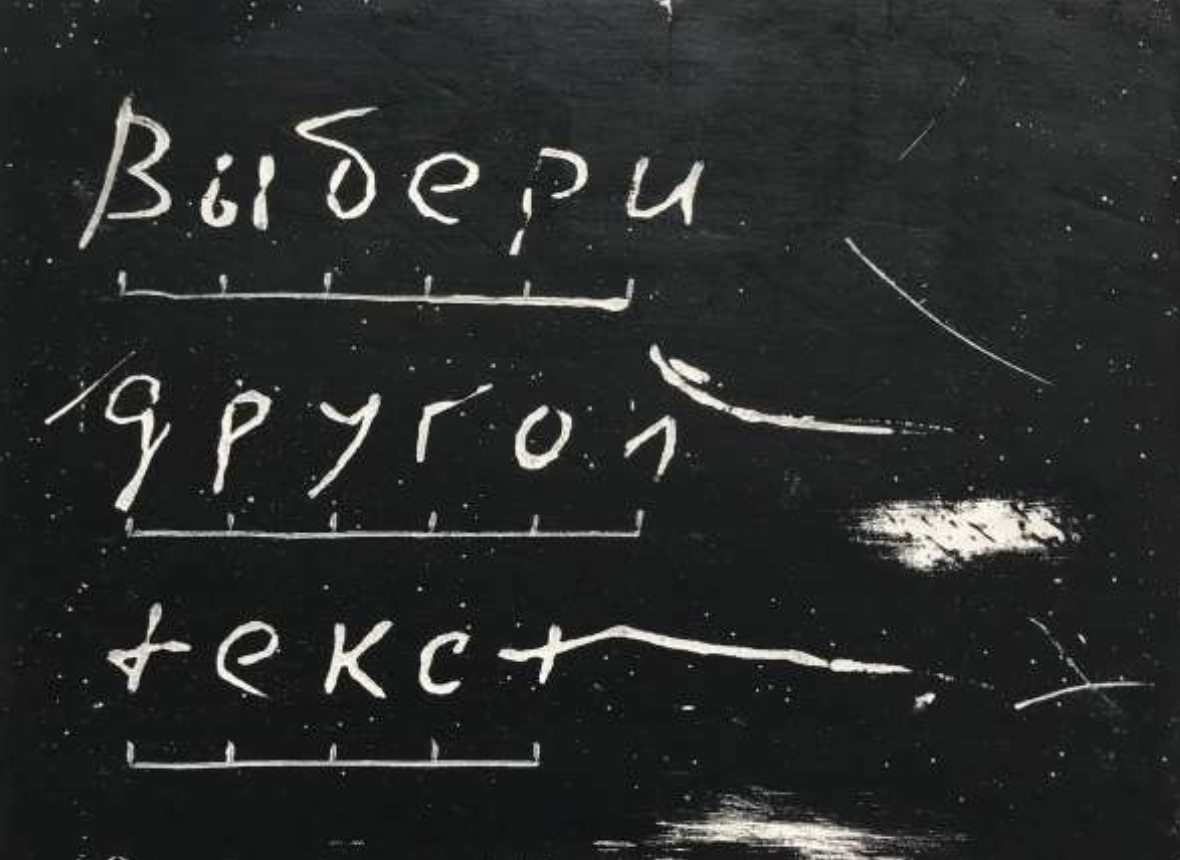 Выбери
другол
текст